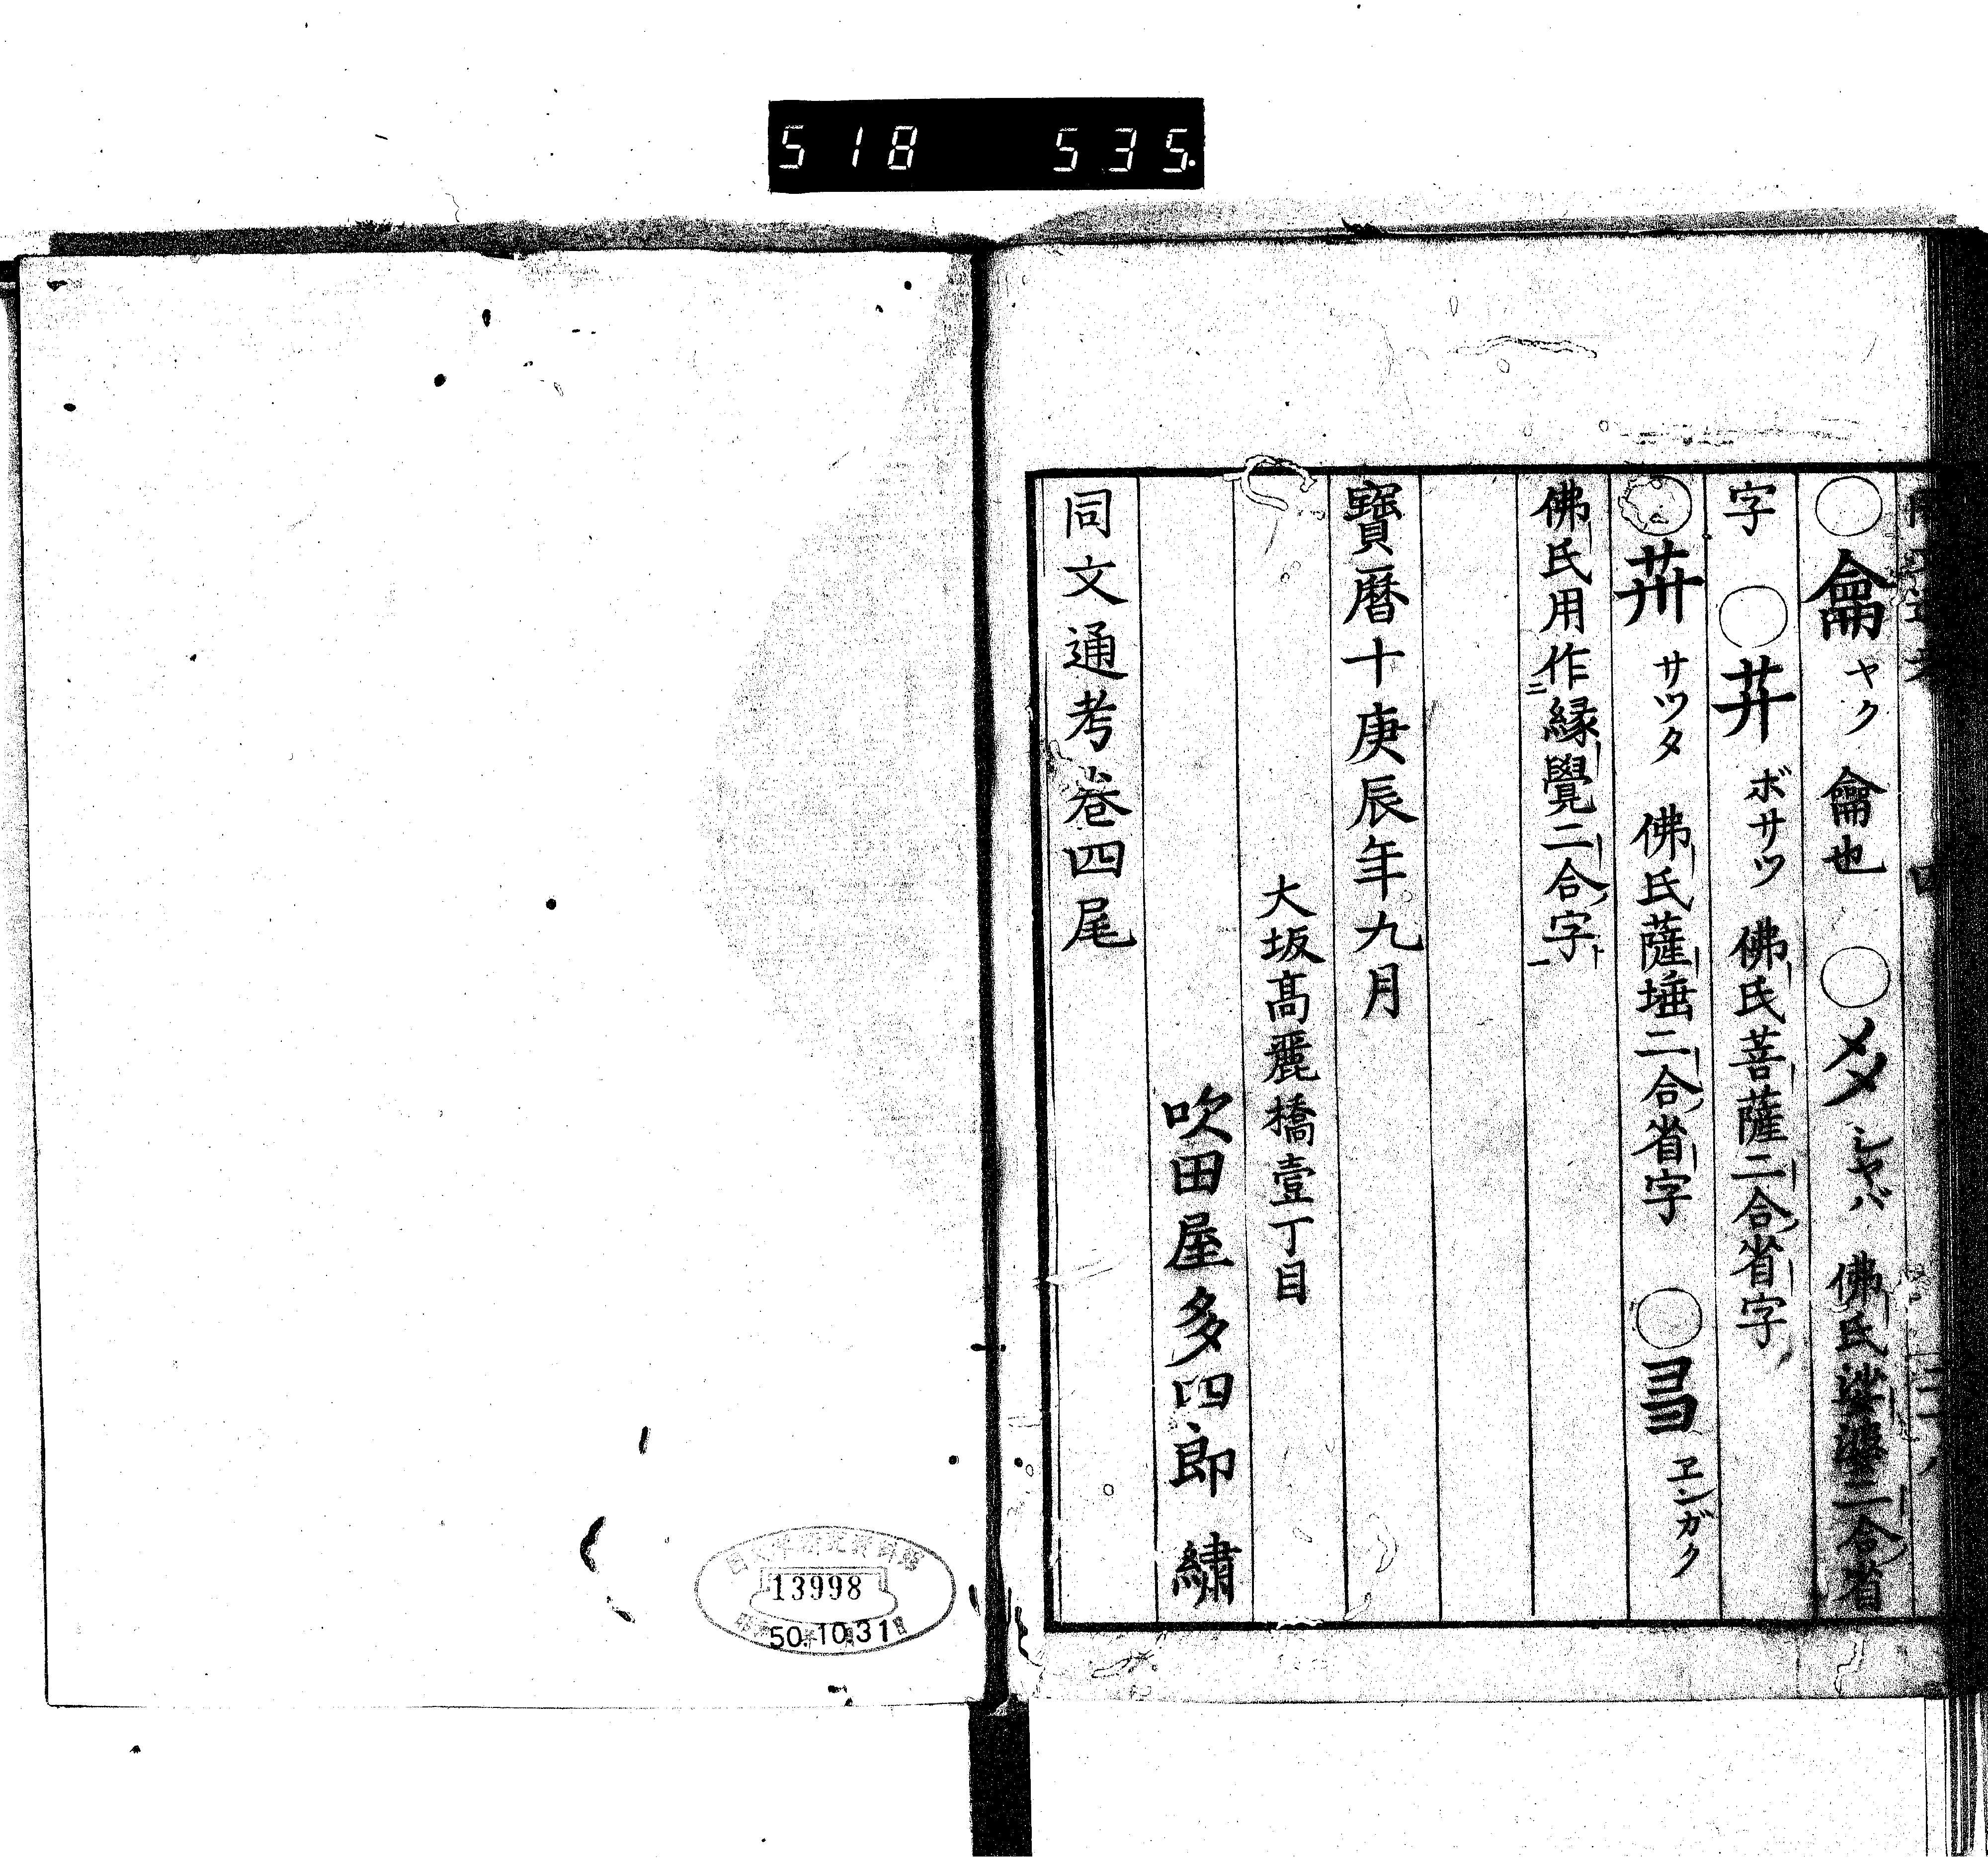 518 535
○侖ヤク龠也○〆〆シヤバ佛氏娑婆二合省
字○𦬇ボサツ佛氏菩薩二合省字
○サツタ佛氏薩埵二合省字○ヱンガク
佛氏用作二縁覺二合字一
寶暦十庚辰年九月
大坂髙麗橋壹丁目
吹田屋多四郎 繍
同文通考巻四尾
13998
50.10.31